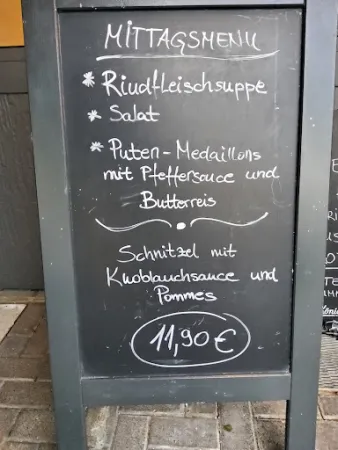 MITTAGSMENU
* Rindfleischsuppe
* Salat
* Puten-Medaillons
mit Pfeffersauce und
Butterreis
Schnitzel mit
Knoblauchsauce und
Pommes
11,90 €